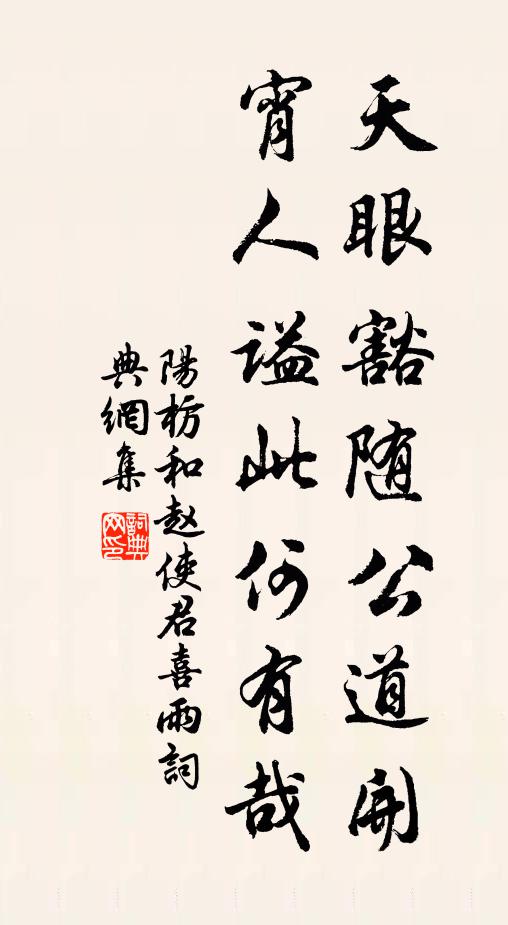 天眼豁随公道開
宵人謚此何有哉
陽枋和赵使君喜雨詞
典網集
詞典
网印